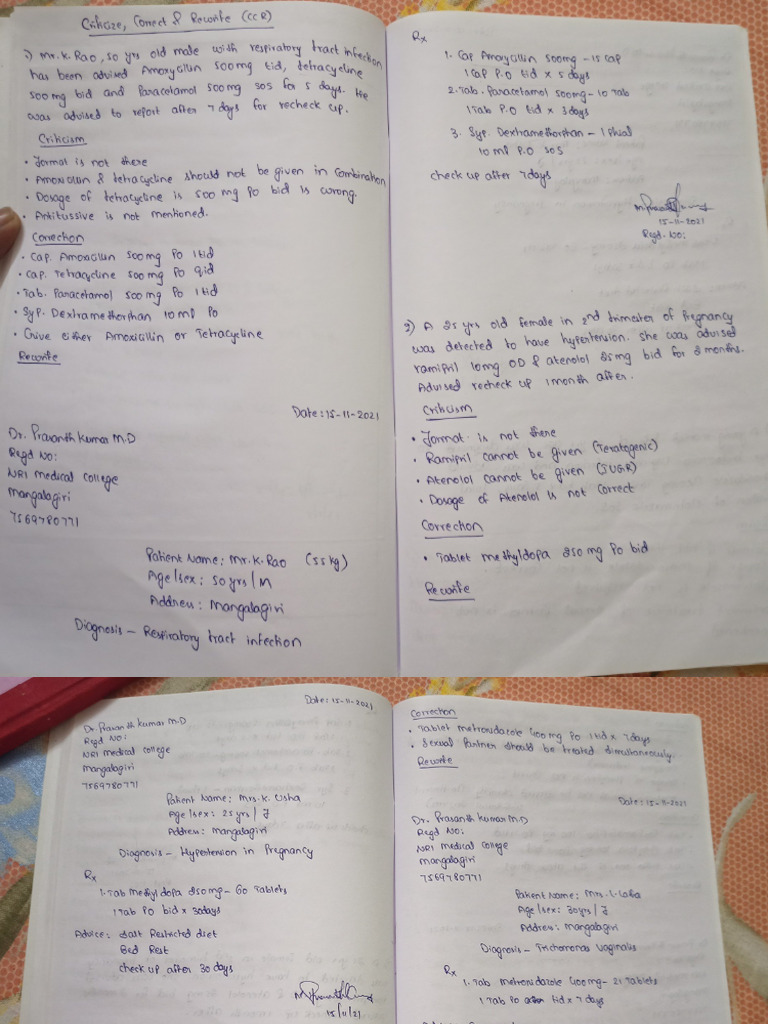 Criticize, Correct & Rewrite (CCR)
1) Mr. K. Rao, 50 yrs old male with respiratory tract infection
has been advised Amoxycillin 500mg tid, tetracycline
500 mg bid and Paracetamol 500mg sos for 5 days. He
was advised to report after 7 days for recheck up.
Criticism
• Format is not there
• Amoxicillin & tetracycline should not be given in combination
• Dosage of tetracycline is 500 mg PO bid is wrong.
• Antitussive is not mentioned.
Correction
• Cap. Amoxicillin 500mg PO 1tid
• Cap. Tetracycline 500 mg PO qid
• Tab. Paracetamol 500 mg PO 1tid
• Syp. Dextramethorphan 10 ml PO
• Give either Amoxicillin or Tetracycline
Rewrite
Date: 15-11-2021
Dr. Prasanth Kumar M.D
Regd No:
NRI Medical College
Mangalagiri
7569780771
Patient Name: Mr. K. Rao (55kg)
Age/sex: 50yrs/M
Address: Mangalagiri
Diagnosis - Respiratory tract infection
Rx
1. Cap Amoxycillin 500mg - 15 cap
1 cap P.O tid x 5 days
2. Tab. Paracetamol 500mg - 10 Tab
1 Tab P.O tid x 3 days
3. Syp. Dextramethorphan - 1
10 ml P.O SOS
check up after 7days
15-11-2021
Regd. No:
2) A 25 yrs old female in 2nd trimester of Pregnancy
was detected to have hypertension. she was advised
ramipril 10mg OD & atenolol 25mg bid for 3 months.
Advised recheck up 1 month after.
Criticism
• Format is not there
• Ramipril cannot be given (Teratogenic)
• Atenolol cannot be given (IUGR)
• Dosage of Atenolol is not correct
Correction
• Tablet methyldopa 250 mg PO bid
Rewrite
Date: 15-11-2021
Dr. Prasanth Kumar M.D
Regd No:
NRI Medical college
Mangalagiri
7569780771
Patient Name: Mrs. K. Usha
Age/sex: 25 yrs/F
Address: Mangalagiri
Diagnosis - Hypertension in Pregnancy
Rx
1. Tab Methyldopa 250mg - 60 Tablets
1 Tab PO bid x 30days
Advice: Salt Restricted diet
Bed Rest
check up after 30 days
15/11/21
Correction
• Tablet metronidazole 400 mg PO 1tid x 7days
• Sexual Partner should be treated simultaneously.
Rewrite
Date: 15-11-2021
Dr. Prasanth Kumar M.D
Regd No:
NRI Medical college
Mangalagiri
7569780771
Patient Name: Mrs.
Age/sex: 30yrs/F
Address: Mangalagiri
Diagnosis - Trichomonas vaginalis
Rx
1. Tab Metronidazole 400mg - 21 Tablets
1 Tab PO tid x 7 days